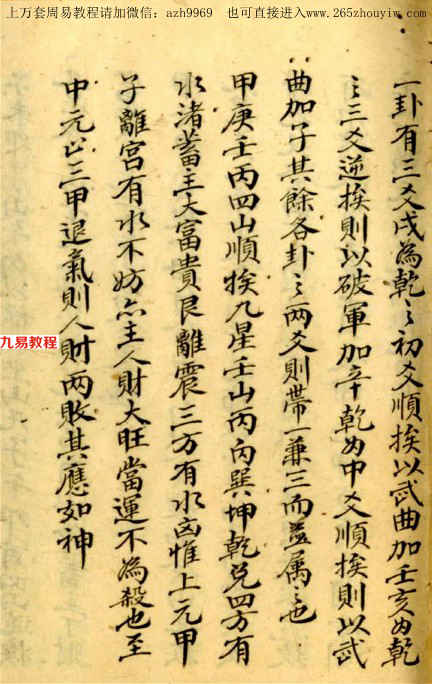 上万套周易教程请加微信：azh9969　也可直接进入www.265zhouyiw.com
一卦有三爻戌為乾〻初爻順挨以武曲加壬亥為乾
〻三爻逆挨則以破軍加辛乾為中爻順挨則以武
曲加子其餘各卦〻兩爻則帶一兼三而並属〻也
甲庚壬丙四山順挨九星壬山丙向巽坤乾兌四方有
水渚蓄主大富貴艮離震三方有水凶惟上元甲
子離宮有水不妨亦主人財大旺當運不為殺也至
中元山三甲退氣則人財兩敗其應如神
九易教程